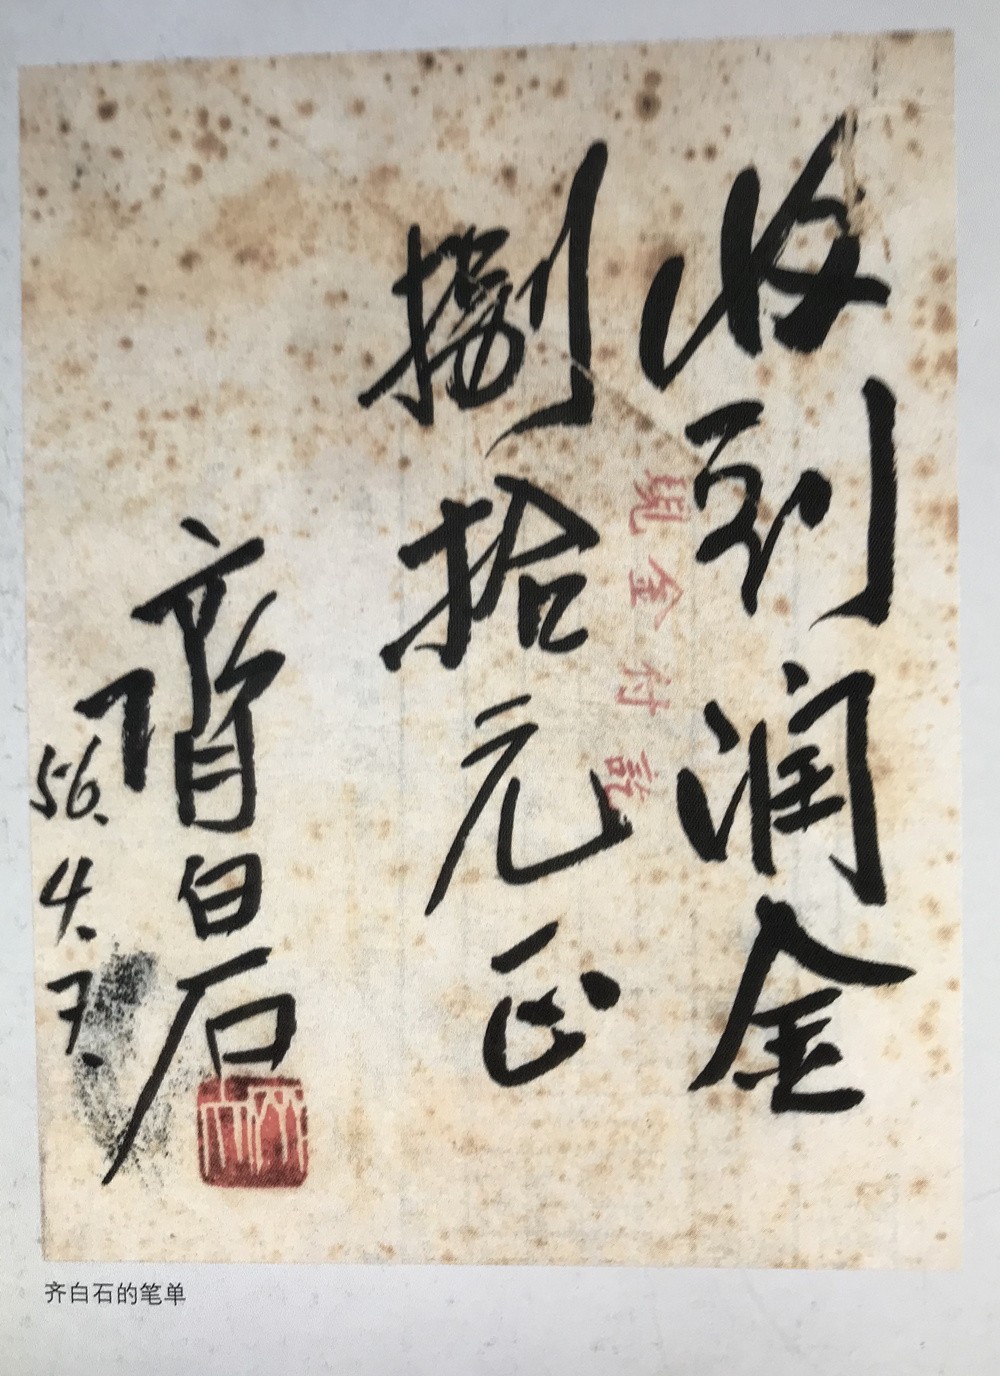 收到润金
捌拾元正
齊白石
56.4.7.
现金付訖
齐白石的笔单